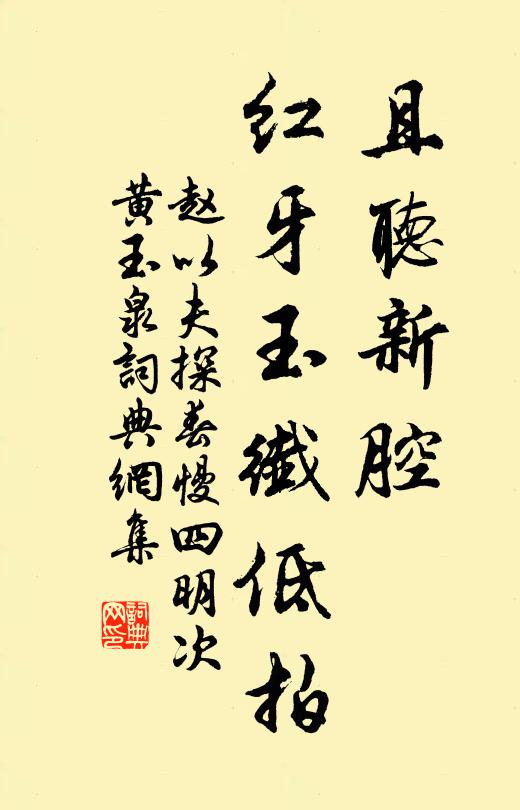 且聽新腔
红牙玉纖低拍
赵以夫探春慢四明次
黄玉泉詞典網集
詞典
网印